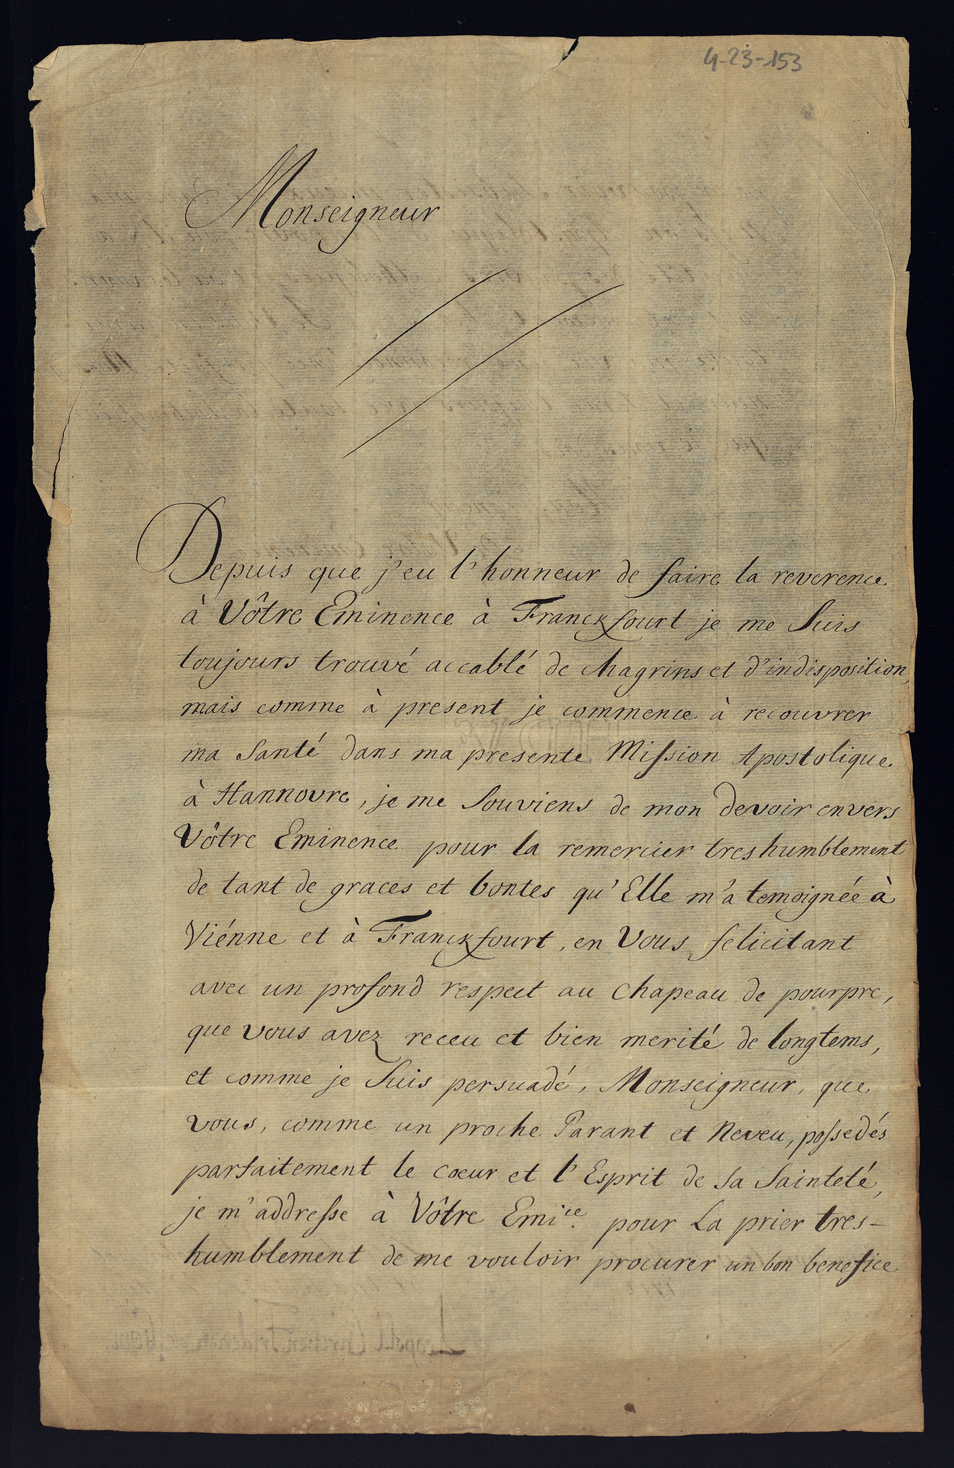 4-23-153
Monseigneur
Depuis que j'eu l'honneur de faire la reverence
à Vôtre Eminence à Franckfourt je me suis
toujours trouvé accablé de chagrins et d'indisposition,
mais comme à present je commence à recouvrer
ma santé dans ma presente Mission Apostolique
à Hannovre, je me souviens de mon devoir envers
Vôtre Eminence pour la remercier tres humblement
de tant de graces et bontes qu'Elle m'a temoignée à
Viénne et à Franckfourt, en Vous felicitant
avec un profond respect au chapeau de pourpre,
que vous avez receu et bien merité de longtems,
et comme je suis persuadé, Monseigneur, que
vous, comme un proche Parant et Neveu, possedés
parfaitement le cœur et l'Esprit de sa Sainteté,
je m'addresse à Vôtre Emi:ce pour La prier tres-
humblement de me vouloir procurer un bon benefice